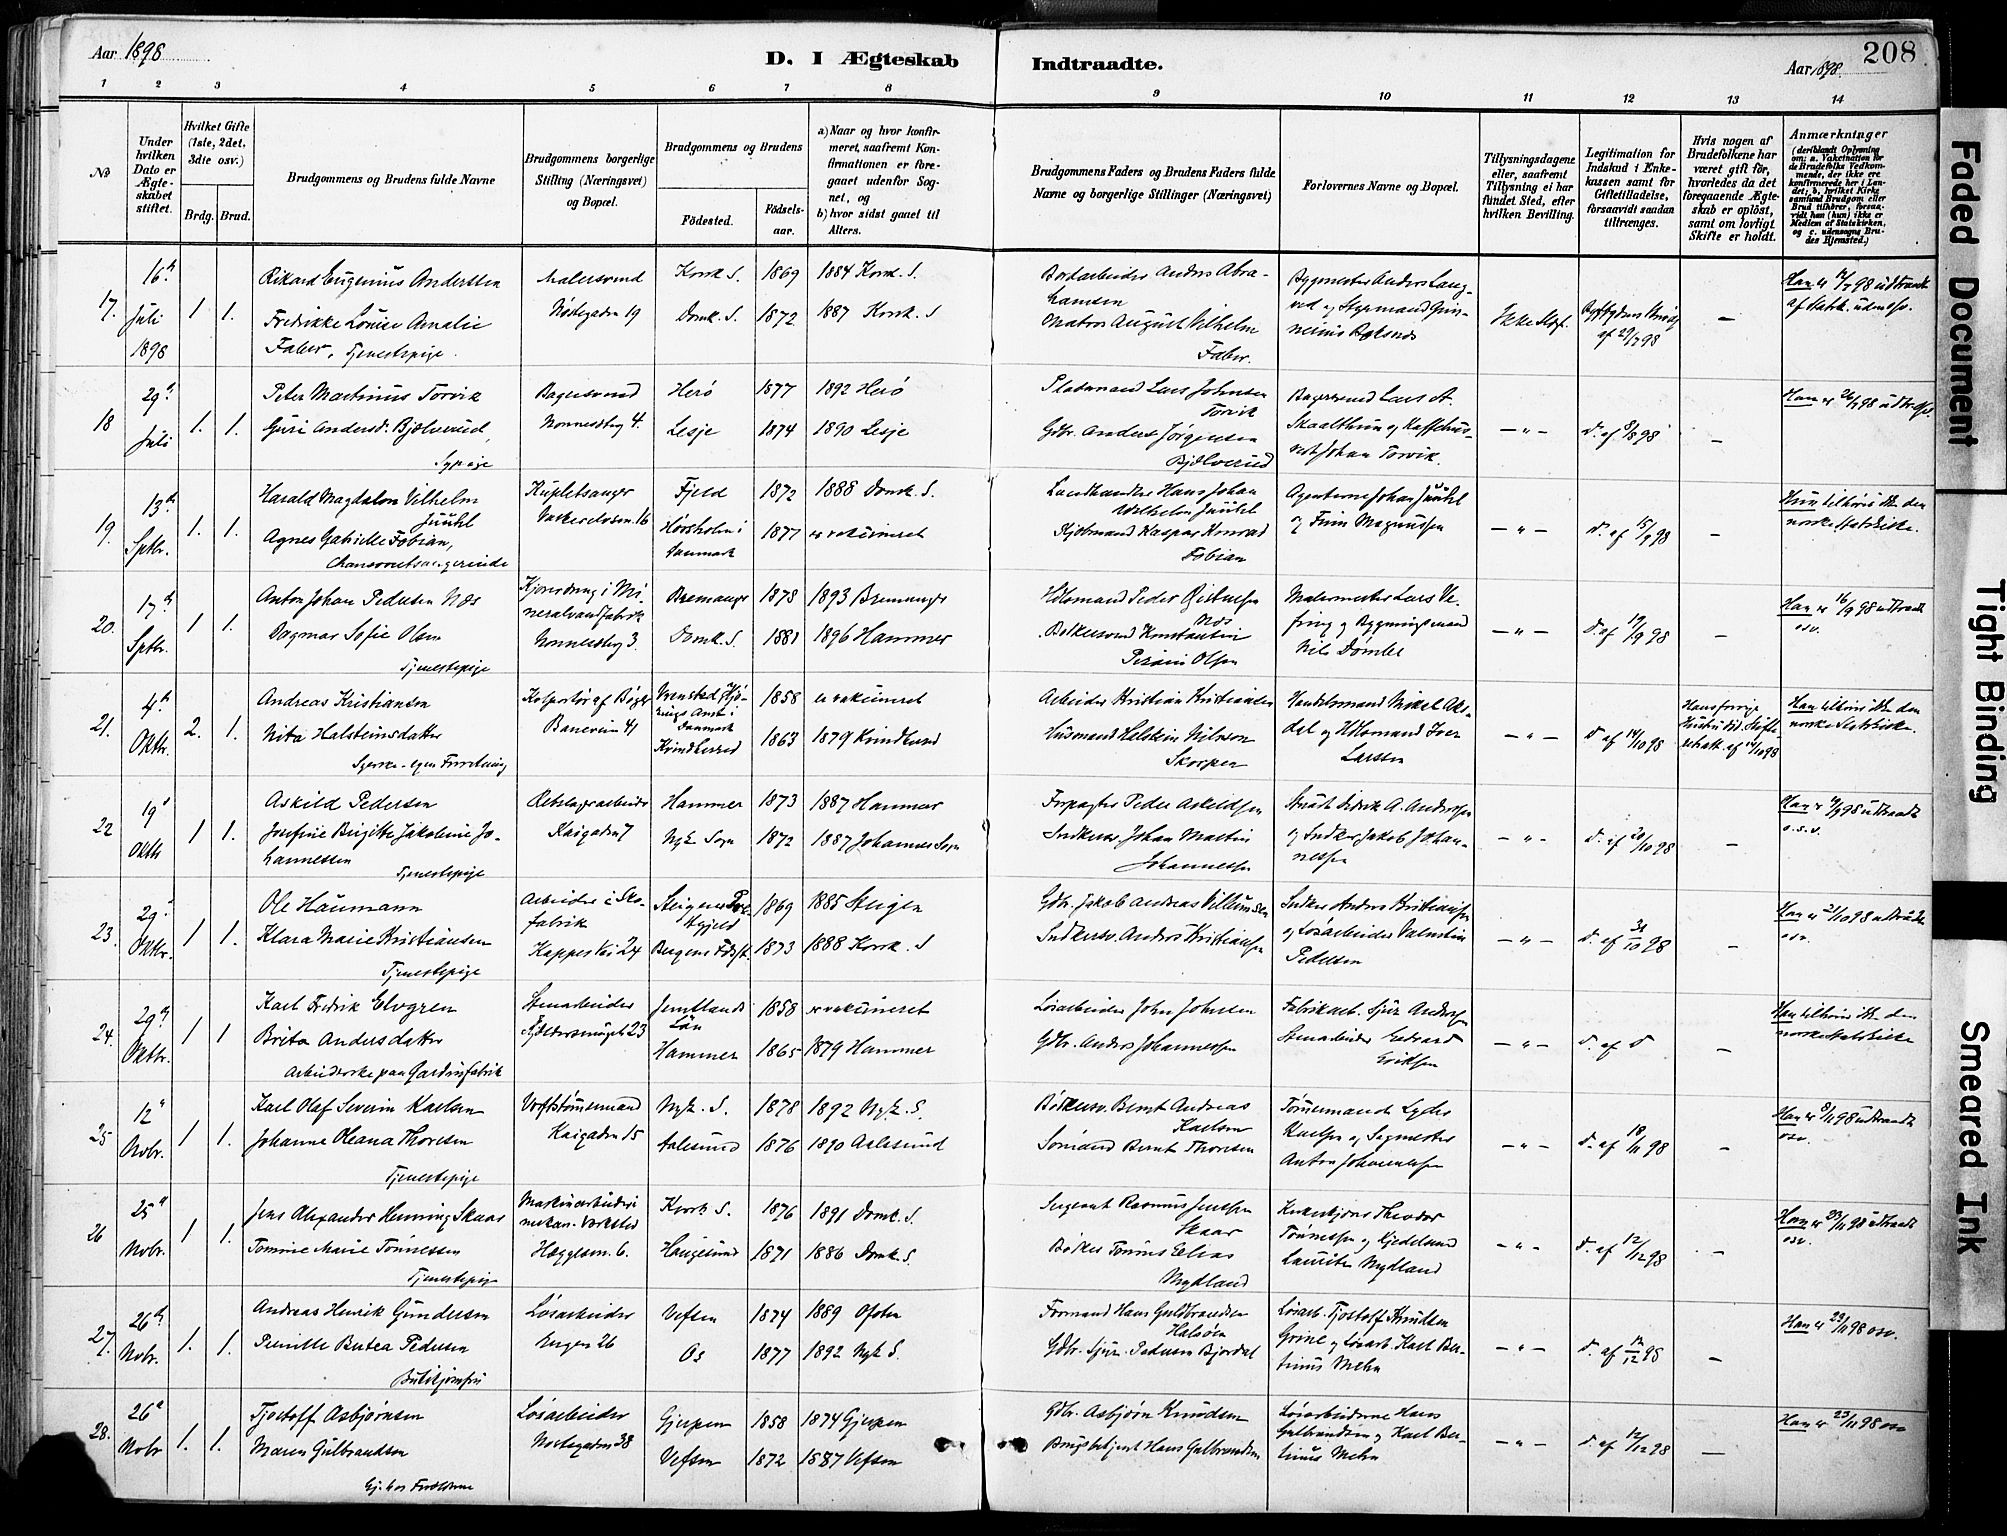 Aar 1898
D. I Ægteskab Indtraadte.
Aar 1898.
208
1 2 3 4 5 6 7 8 9 10 11 12 13 14
No
Under hvilken Dato er Ægteskabet stiftet.
Hvilket Gifte (1ste, 2det, 3die osv.)
Brdg. Brud.
Brudgommens og Brudens fulde Navne
Brudgommens borgerlige Stilling (Næringsvei) og Bopæl.
Brudgommens og Brudens
Fødested.
Fødselsaar.
a) Naar og hvor konfirmeret, saafremt Konfirmationen er foregaaet udenfor Sognet, og
b) hvor sidst gaaet til Alters.
Brudgommens Faders og Brudens Faders fulde Navne og borgerlige Stillinger (Næringsvei)
Forlovernes Navne og Bopæl.
Tillysningsdagene eller, saafremt Tillysning ei har fundet Sted, efter hvilken Bevilling.
Legitimation for Indskud i Enkekassen samt for Giftetilladelse, forsaavidt saadan tiltrænges.
Hvis nogen af Brudefolkene har været gift før, hvorledes da det foregaaende Ægteskab er opløst, samt om lovligt Skifte er holdt.
Anmærkninger (deriblandt Oplysning om: a. Vakcination for de Brudefolks Vedkommende, der ikke ere konfirmerede her i Landet; b. hvilket Kirkesamfund Brudgom eller Brud tilhører, forsaavidt han (hun) ikke er Medlem af Statskirken, og c. udensogns Brudes Hjemsted.)
17. 16de Juli 1898 1. 1.
Rikard Eugenius Anderssen
Fredrikke Louise Amalie
Faber, Tjenestepige.
Malersvend
Nøstegaden 19
Korsk. S. 1869 1884 Korsk. S.
Domk. S. 1872 1887 Korsk. S
Bordarbeider Anders Abrahamsen
Matros August Vilhelm
Faber.
Ikke
af 29/7 98
Han er 12/7 98 udtraadt
af Statsk.
18 29de Juli 1. 1.
Peter Martinus Torvik
Guri Andersd. Bjølverud,
Sypige
Bagersvend
Nonnesdtg 4.
Herø 1877 1892 Herø
Lesje 1874 1890 Lesje
Lars Johnsen
Torvik
Gdbr. Anders Jørgensen
Bjølverud
Bagersvend Lars A.
Skaalthun og
Johan Torvik.
— " — d. af 8/8 98 —
19. 13de Sptbr. 1. 1.
Harald Magdalon Vilhelm
Juuhl
Agnes Gabrielle Fabian,
Chansonetsangerinde
Kupletsanger
16
Fjeld 1872 1888 Domk. S.
Hørsholm i
Danmark 1877 er vakcineret
Landhandler Hans Johan
Wilhelm Juuhl
Kjøbmand Kaspar Konrad
Fabian
Agenterne Johan Juuhl
og Finn Magnussen
— " — d. af 15/9 98 —
Hun tilhører ikke den
norske Statskirke.
20. 17de Sptbr. 1 1.
Anton Johan Pedersen Næs
Dagmar Sofie Olsen
Tjenestepige
Mineralvandfabrik
Nonnesdtg 3.
Bremanger 1878 1893 Bremanger
Domk. S. 1881 1896 Hammer
Næs
Bødkersvend Konstantin
Olsen
Malermester Lars
og Bygningsmand
Nils Dombe
— " — d. af 17/9 98 —
Han er 16/9 98 udtraadt
osv.
21. 4de Oktbr. 2. 1.
Andreas Kristiansen
Nita Halsteinsdatter
Kolportør af Bøger
Baneveien 41
Hjørrings Amt i
Danmark 1858 er vakcineret
Kvindherred 1863 1879 Kvindherred
Arbeider Kristian Kristiansen
Husmand Helstein Nilsson
Skorpen
Handelsmand Mikal
og Iver
Larssen
— " — d. af 14/10 98
Hans forrige
Hustru
attest af 14/10 98
Han tilhører ikke den
norske Statskirke.
22 19de Oktbr 1 1.
Askild Pedersen
Josefine Birgitte Jakobine Johannessen
Tjenestepige
Rebslagerarbeider
Kaigaden 7
Hammer 1873 1887 Hammer
Nyk. Sogn 1872 1887 Johannes Sogn
Forpagter Peder Askildsen
Johan Martin
Johannessen
A. Anderssen
og Jakob Johannessen
— " — d. af 20/10 98 —
o.s.v.
23. 29de Oktbr. 1 1.
Ole Haumann
Klara Marie Kristiansen
Tjenestepige
Arbeider i Skofabrik
Kappes Vei 24
1869 1885 Steigen
Bergens Fødst. 1873 1888 Korsk. S
Gdbr. Jakob Andreas Villumsen
Anders Kristiansen
Anders Kristiansen
og Løsarbeider Valentin
Pedersen
— " — d. af 31/10 98 —
Han er 21/10 98 udtraadt
osv.
24. 29de Oktbr. 1 1
Karl Fredrik Elvgren
Brita Andersdatter
Arbeiderske paa Gardinfabrik
Stenarbeider
23
Jemtlands
Län 1858 er vakcineret
Hammer 1865 1879 Hammer
Løsarbeider John Johnsen
Gdbr. Anders Johannessen
Fabrikarb. Sjur Anderssen
Stenarbeider Edvard
Eriksen
— " — d. af d —
Han tilhører ikke den
norske Statskirke
25 12te Novbr. 1 1.
Karl Olaf Severin Karlsen
Johanne Oleana Thoresen
Tjenestepige
Verftstømmermand
Kaigaden 15
Nyk. S. 1878 1892 Nyk. S.
Aalesund 1876 1890 Aalesund
Bødkersv. Bernt Andreas
Karlsen
Sømand Bernt Thoresen
Tømmermand Lyder
Karlsen og Sagmester
Anton Johannessen
— " — d. af 18/11 98 —
Han er 8/11 98 udtraadt
osv.
26 25de Novbr. 1 1.
Jens Alexander Henning Skaar
Tomine Marie Tønnessen
Tjenestepige
Maskinarbeider i
mekan. Værksted
Hæggesm. 6.
Korsk. S. 1876 1891 Domk. S.
Haugesund 1871 1886 Domk. S.
Sergeant Rasmus Jenssen
Skaar
Bødker Tønnes Elias
Mydland
Theodor
Tønnessen og
Lauritz Mydland
— " — d. af 12/12 98 —
Han er 23/11 98 udtraadt
osv.
27. 26de Novbr. 1. 1.
Andreas Henrik Gundersen
Pernille Bertea Pedersen
Butikjomfru
Løsarbeider
Engen 26
Vefsen 1874 1889
Os 1877 1892 Nyk S.
Formand Hans Guldbrandsen
Halsøen
Gdbr. Sjur Pedersen Bjordal
Løsarb. Tjostolf Knudsen
Grine og Løsarb. Karl Bertinius Mehn
— " — d. af 12/12 98 —
Han er 23/11 98 osv.
28. 26de Novbr 1. 1.
Tjostolf Asbjørnsen
Maren Gulbrandsen
Løsarbeider
Nøstegaden 38
Gjerpen 1858 1874 Gjerpen
Vefsen 1872 1887 Vefsen
Gdbr. Asbjørn Knudsen
Brugsbetjent Hans Gulbrandsen
Løsarbeiderne Hans
Gulbrandsen og Karl Bertinius Mehn
— " — d. af 12/12 98 —
Han er 23/11 98 osv
Faded Document
Tight Binding
Smeared Ink